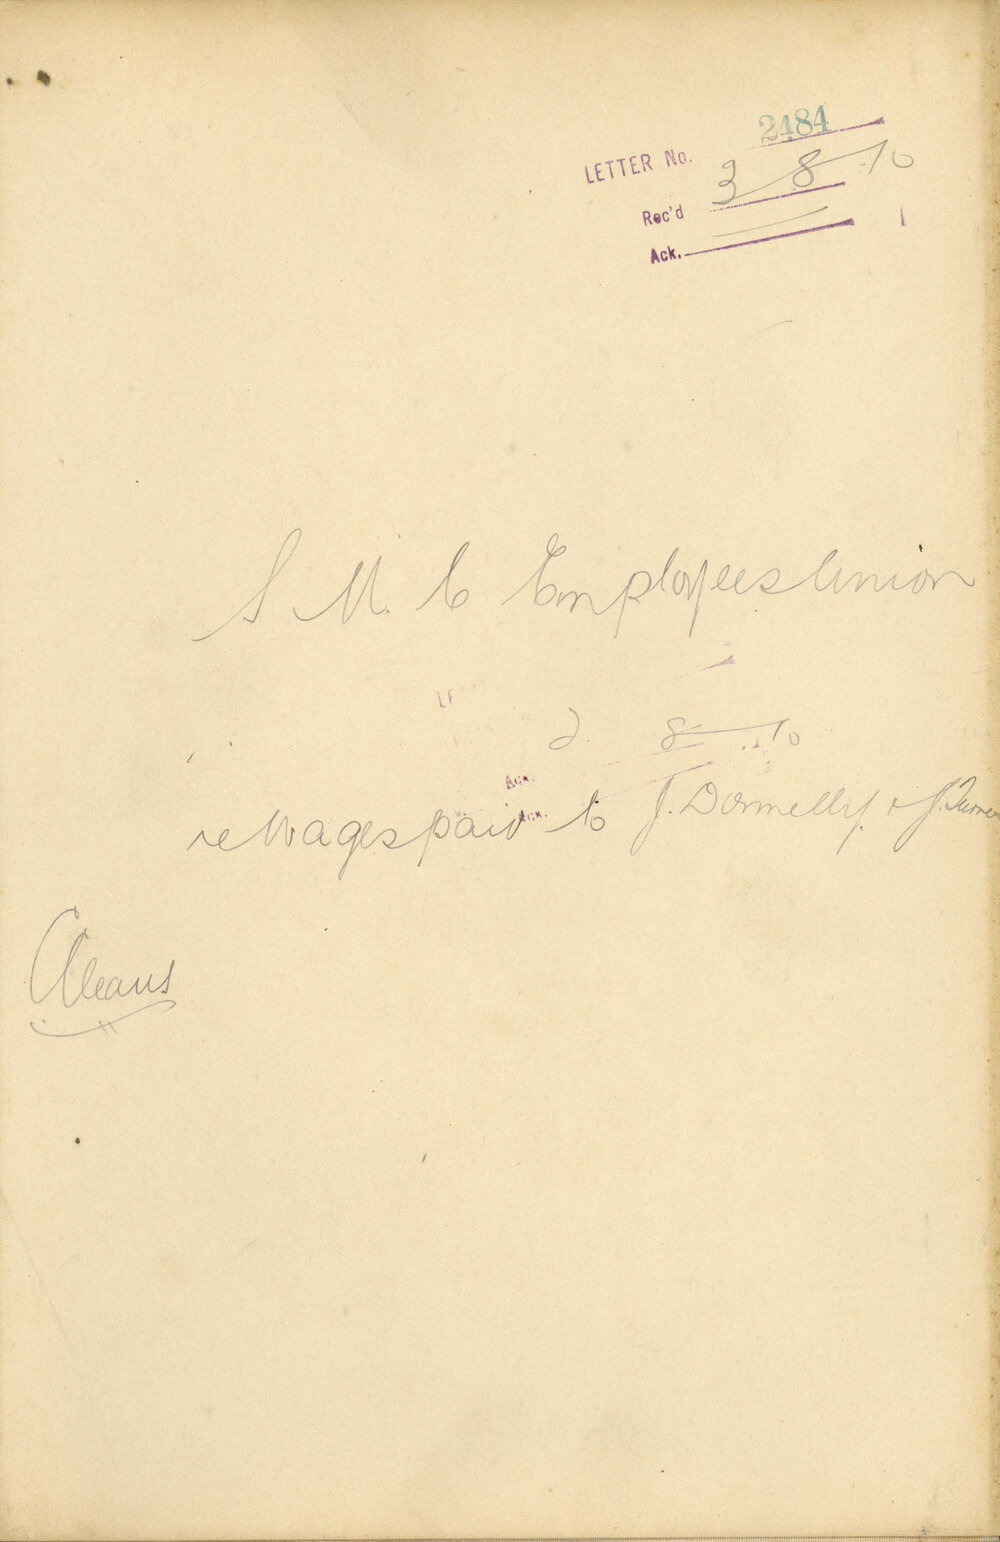 LETTER No. 2484
Rec'd 3 8 10
Ack.
S M. C Employees Union
8 10
Ack.
Ack.
re Wages paid to J. Donnelly & J.